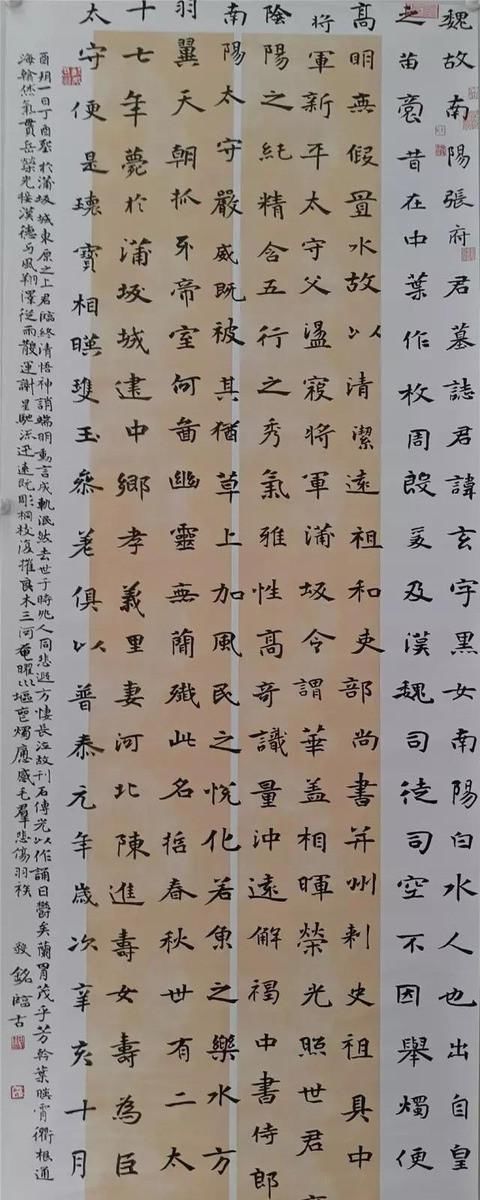 魏故南陽張府君墓誌君諱玄字黑女南陽白水人也出自皇
之苗裔昔在中葉作牧周殷爰及漢魏司徒司空不因舉燭便
高明無假置水故以清潔遠祖和吏部尚書并州刺史祖具中
將軍新平太守父盪寇將軍蒲坂令謂華蓋相暉榮光照世君
陰陽之純精含五行之秀氣雅性高奇識量沖遠解褐中書侍郎
南陽太守嚴威既被其猶草上加風民之悅化若魚之樂水方
羽翼天朝抓牙帝室何啚幽靈無蘭殲此名哲春秋世有二太
十七年薨於蒲坂城建中鄉孝義里妻河北陳進壽女壽為臣
太守便是瓌寶相暎雙玉參差俱以普泰元年歲次辛亥十月
酉朔一日丁酉葬於蒲坂城東原之上君臨終清悟神誚端明動言成軌泯然去世于時兆人同悲遐方悽長泣故刊石傳光以作誦曰鬱矣蘭胄茂乎芳幹葉暎霄衢根通
海翰然氣貫岳榮光接漢德与風翔澤從雨散運謝星馳流迅速既彫桐枝復摧良木三河奄曜燭應感毛羣悲傷羽族 敬銘臨古